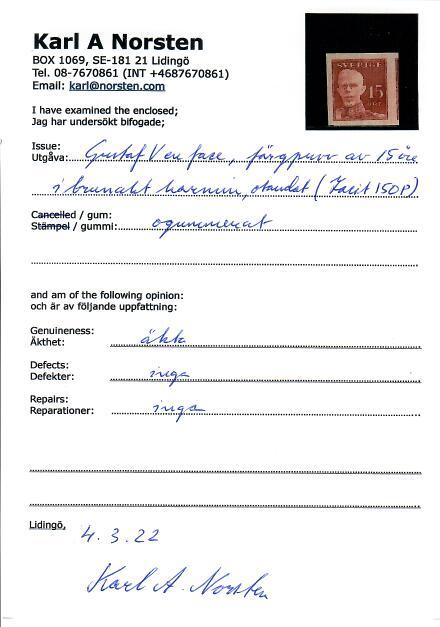 Karl A Norsten
BOX 1069, SE-181 21 Lidingö
Tel. 08-7670861 (INT +4687670861)
Email: karl@norsten.com
SVERIGE
15
ÖRE
I have examined the enclosed;
Jag har undersökt bifogade;
Issue:
Utgåva: Gustaf V en face, färgprov av 15 öre
i brunakt karmin, otandat (Facit 150P)
Cancelled / gum:
Stämpel / gummi: ogummerat
and am of the following opinion:
och är av följande uppfattning:
Genuineness:
Äkthet: äkta
Defects:
Defekter: inga
Repairs:
Reparationer: inga
Lidingö, 4.3.22
Karl A. Norsten